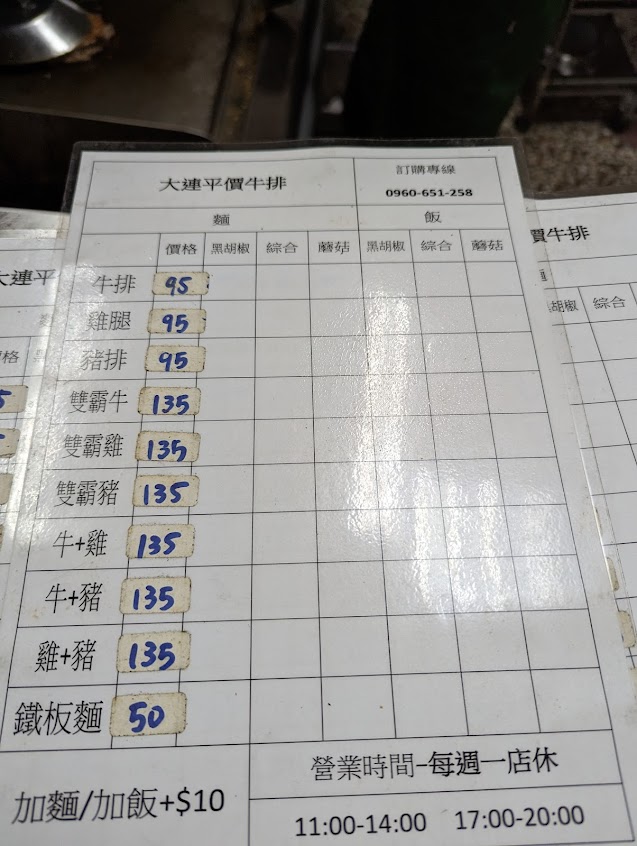 大連平價牛排 訂購專線
0960-651-258
麵 飯
價格 黑胡椒 綜合 蘑菇 黑胡椒 綜合 蘑菇
牛排 95
雞腿 95
豬排 95
雙霸牛 135
雙霸雞 135
雙霸豬 135
牛+雞 135
牛+豬 135
雞+豬 135
鐵板麵 50
加麵/加飯+$10
營業時間-每週一店休
11:00-14:00 17:00-20:00
大連平
格
價牛排
胡椒 綜合